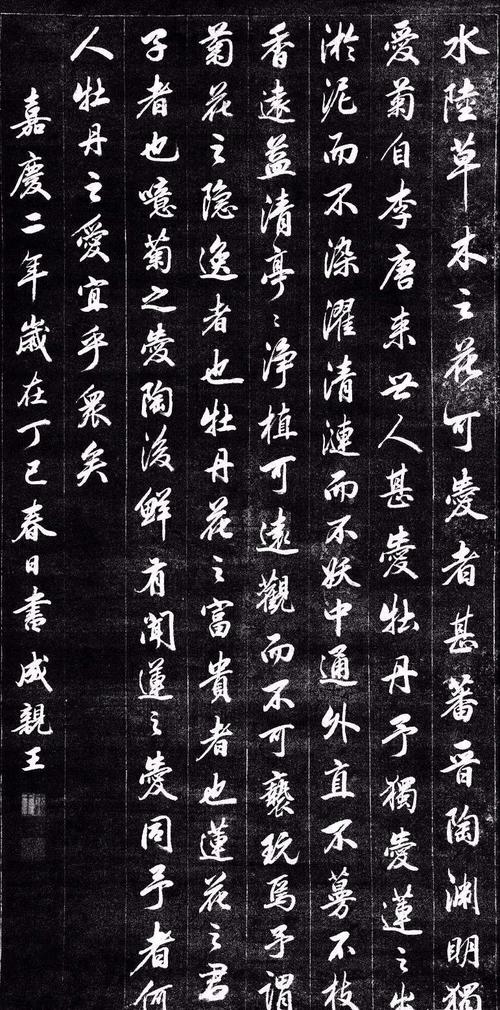 水陸草木之花可愛者甚蕃晉陶淵明獨
愛菊自李唐来世人甚愛牡丹予獨愛蓮之出
淤泥而不染濯清漣而不妖中通外直不蔓不枝
香遠益清亭〻淨植可遠觀而不可褻玩焉予謂
菊花之隐逸者也牡丹花之富貴者也蓮花之君
子者也噫菊之愛陶後鮮有聞蓮之愛同予者何
人牡丹之愛宜乎衆矣
嘉慶二年歲在丁巳春日書成親王